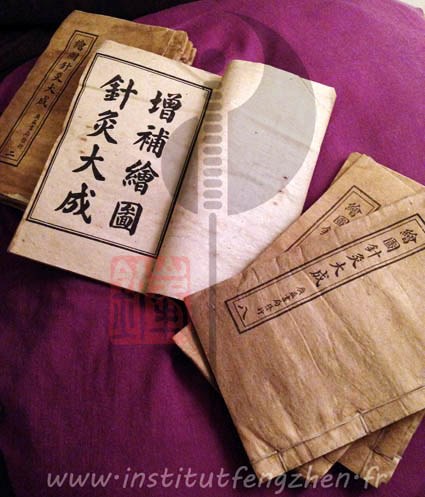 增補繪圖
針灸大成
繪圖針灸大成
三
繪圖
繪圖針灸大成
八
www.institutfengzhen.fr